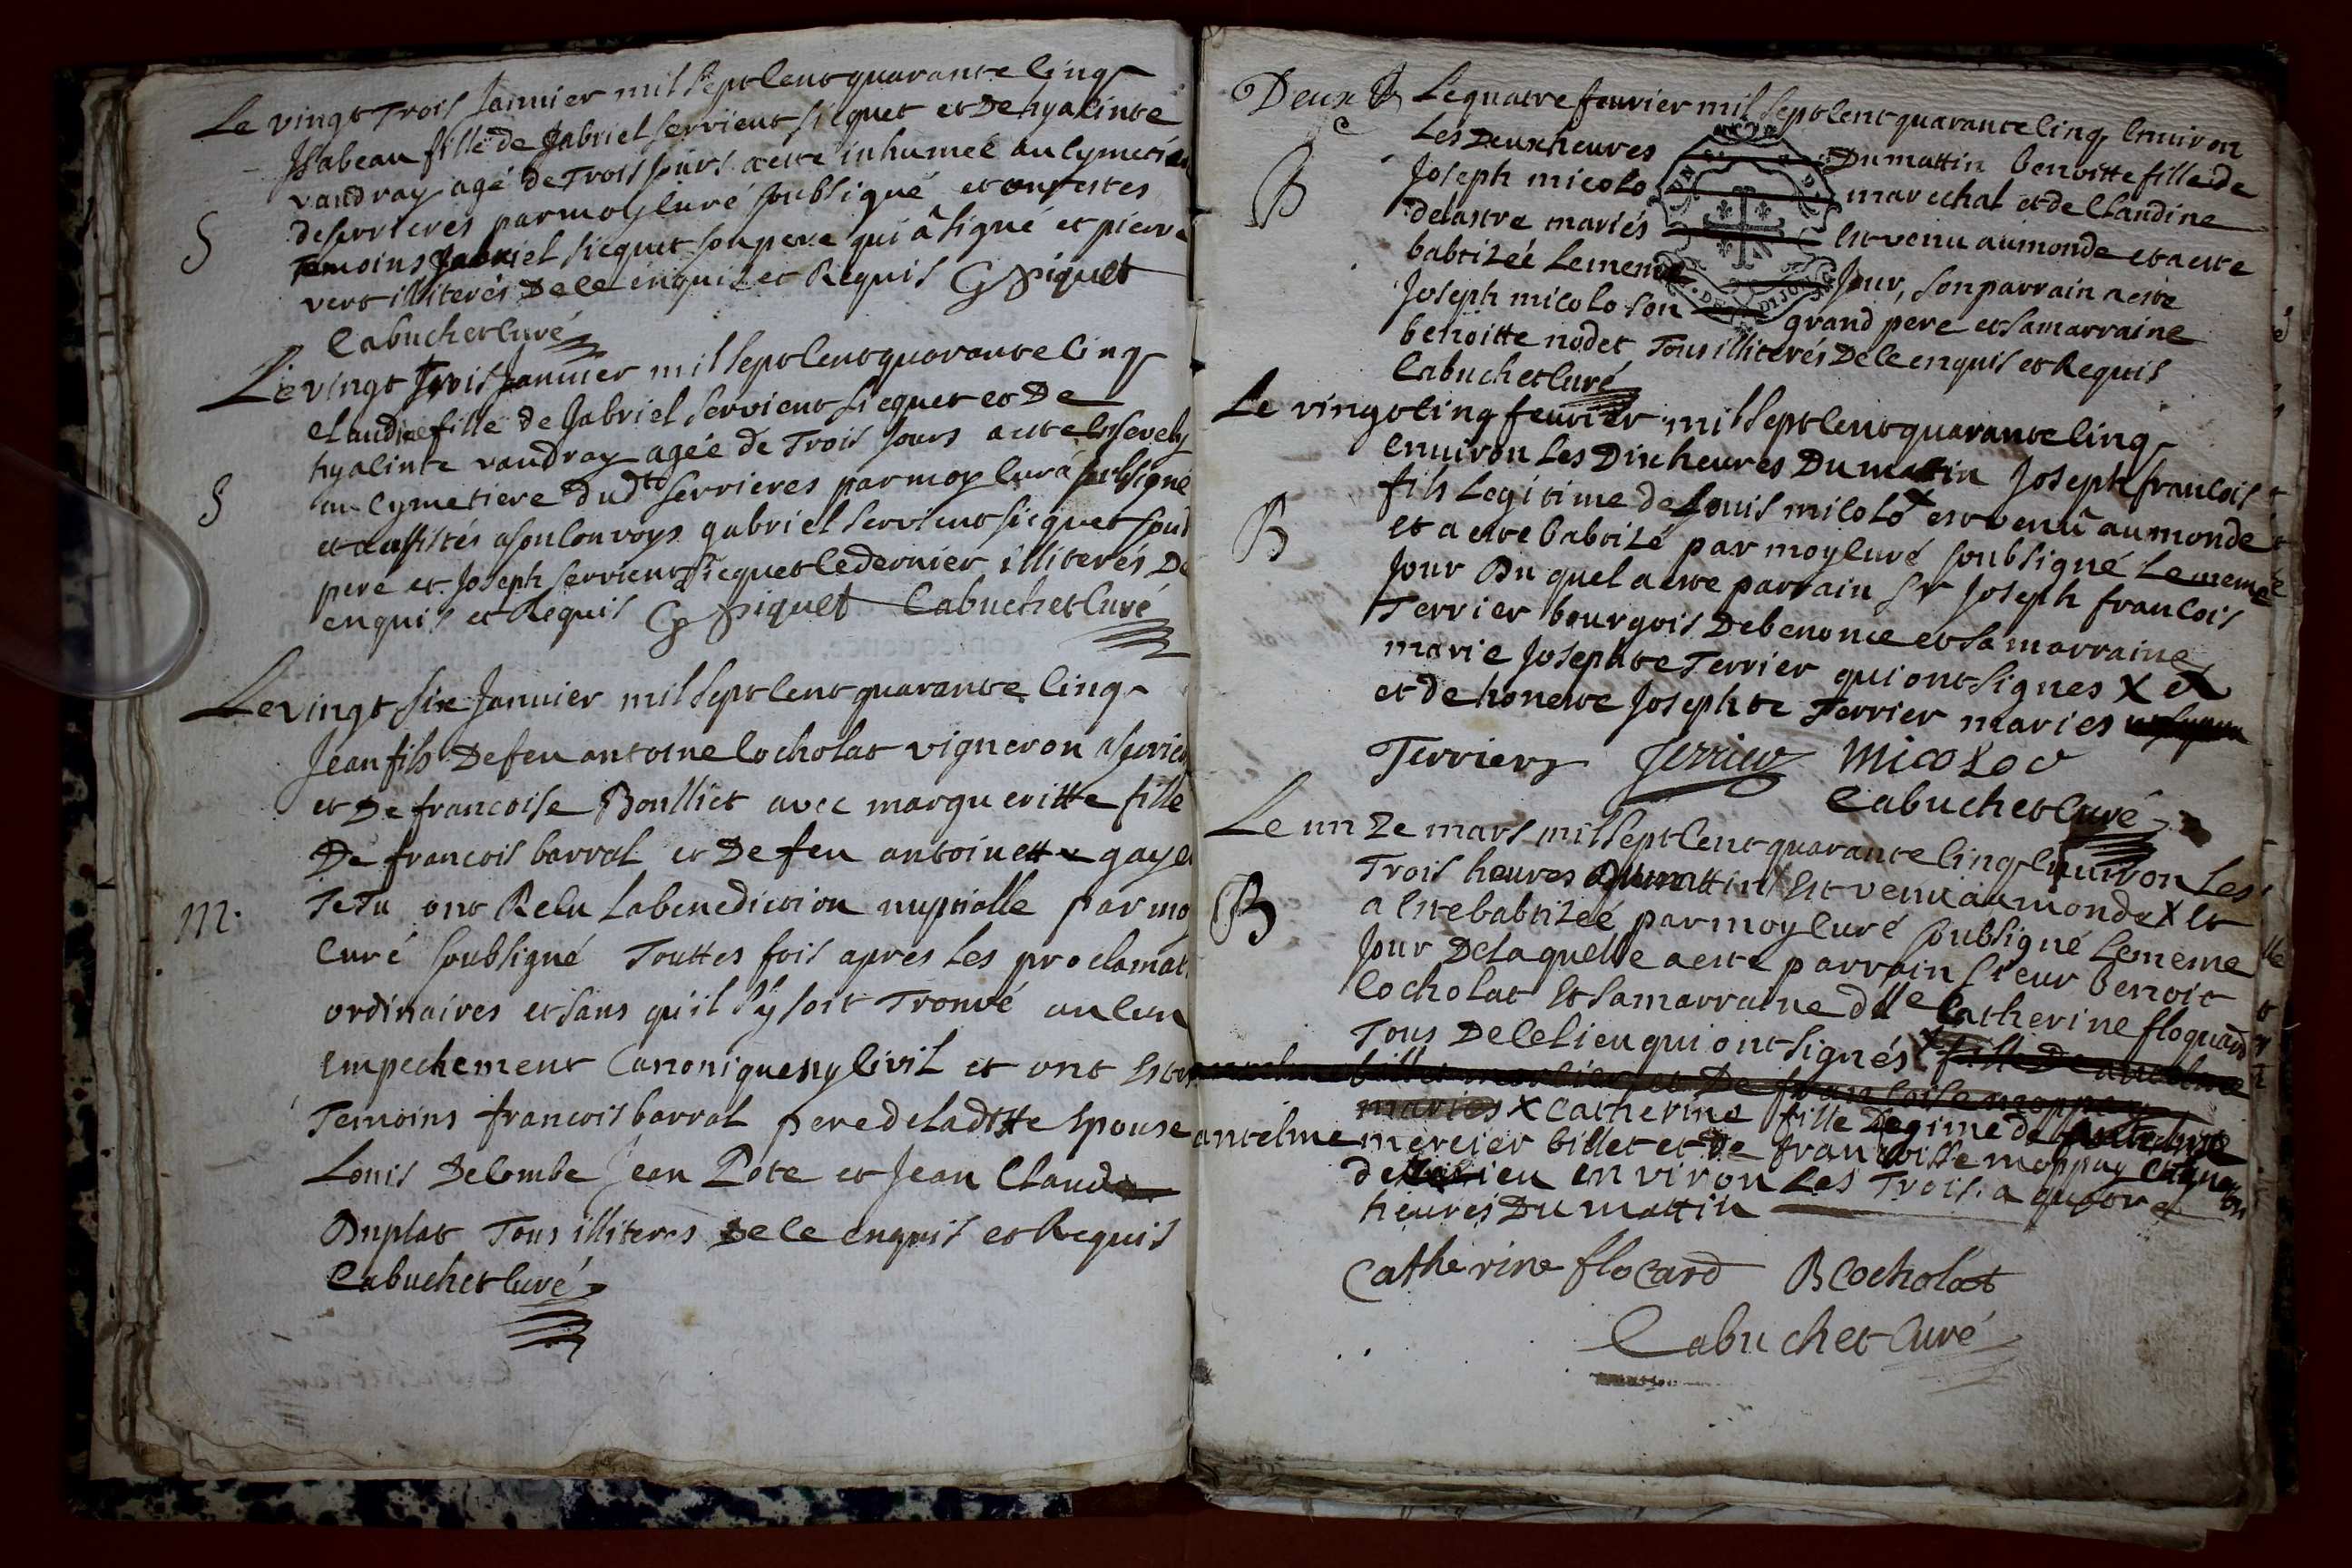 Le vingt Trois Janvier mil sept Cent quarante Cinq
Isabeau fille de gabriel servient sicquet et De hyacinte
vandray agé de Trois Jours a esté inhumée au Cymetiere
de serrieres par moy Curé soubsigné et ont estes
Temoins gabriel sicquet son pere qui â signé et pierre
vert illiterés De Ce enquis et Requis G Siquet
Cabuchet Curé
S
Le vingt Trois Janvier mil sept Cent quarante Cinq
Claudine fille de gabriel servient sicquet et De
hyacinte vandray agée de Trois Jours a esté Ensevely
au Cymetiere dudt serrieres par moy Curé soubsigné
et assistés a son Convoys gabriel servient sicquet son
pere et Joseph servient sicquet Ce dernier illiterés De
enquis et Requis G Siquet Cabuchet Curé
S
Le vingt six Janvier mil sept Cent quarante Cinq
Jean fils De feu antoine Cocholat vigneron a serrieres
et De francoise Boulliet avec margueritte fille
De francois barrat et De feu antoinette gayet
Tetu ont Recu La benediction nuptialle par moy
Curé soubsigné Touttes fois apres Les proclamat
ordinaires et sans qu'il s'y soit Trouvé aucun
Empechement Canonique ny Civil et ont Estes
M.
Temoins francois barrat pere de Ladtte Epouse
Louis Decombe Jean Pote et Jean Claude
Duplat Tous illiteres De Ce enquis et Requis
Cabuchet Curé
Deux
Le quatre fevrier mil sept Cent quarante Cinq Environ
Les Deux heures Du mattin benoitte fille de
Joseph micolo marechal et de Claudine
delastre mariés Est venu au monde et a esté
babtizée Le meme Jour, son parrain a esté
Joseph micolo son grand pere et sa marraine
benoitte nodet Tous illiterés De Ce enquis et Requis
Cabuchet Curé
B
Le vingt Cinq fevrier mil sept Cent quarante Cinq
environ Les Dix heures Du mattin Joseph francois
fils Legitime de Louis micolo X est venu au monde
Et a esté babtizé par moy Curé soubsigné Le meme
Jour Du quel a esté parrain Sr Joseph francois
Terrier bourgois De benonce et sa marraine
marie Josephte Terrier qui ont signes X
et de honeste Josephte Terrier maries
Terrier Terrier Micolo
Cabuchet Curé
B
Le unze mars mil sept Cent quarante Cinq Environ Les
Trois heures Du mattin X Est venu au monde X Et
a Esté babtizeé par moy Curé soubsigné Le meme
Jour De Laquelle a esté parrain sieur benoit
Cocholat Et sa marraine dlle Catherine floquard
Tous De Ce Lieu qui ont signés X fille De antelme
B
maries X Catherine fille Legime de
antelme mercier billet et De francoisse moppay
de lieu environ Les Trois a quatre
heures Du mattin
Catherine flocard B Cocholat
Cabuchet Curé